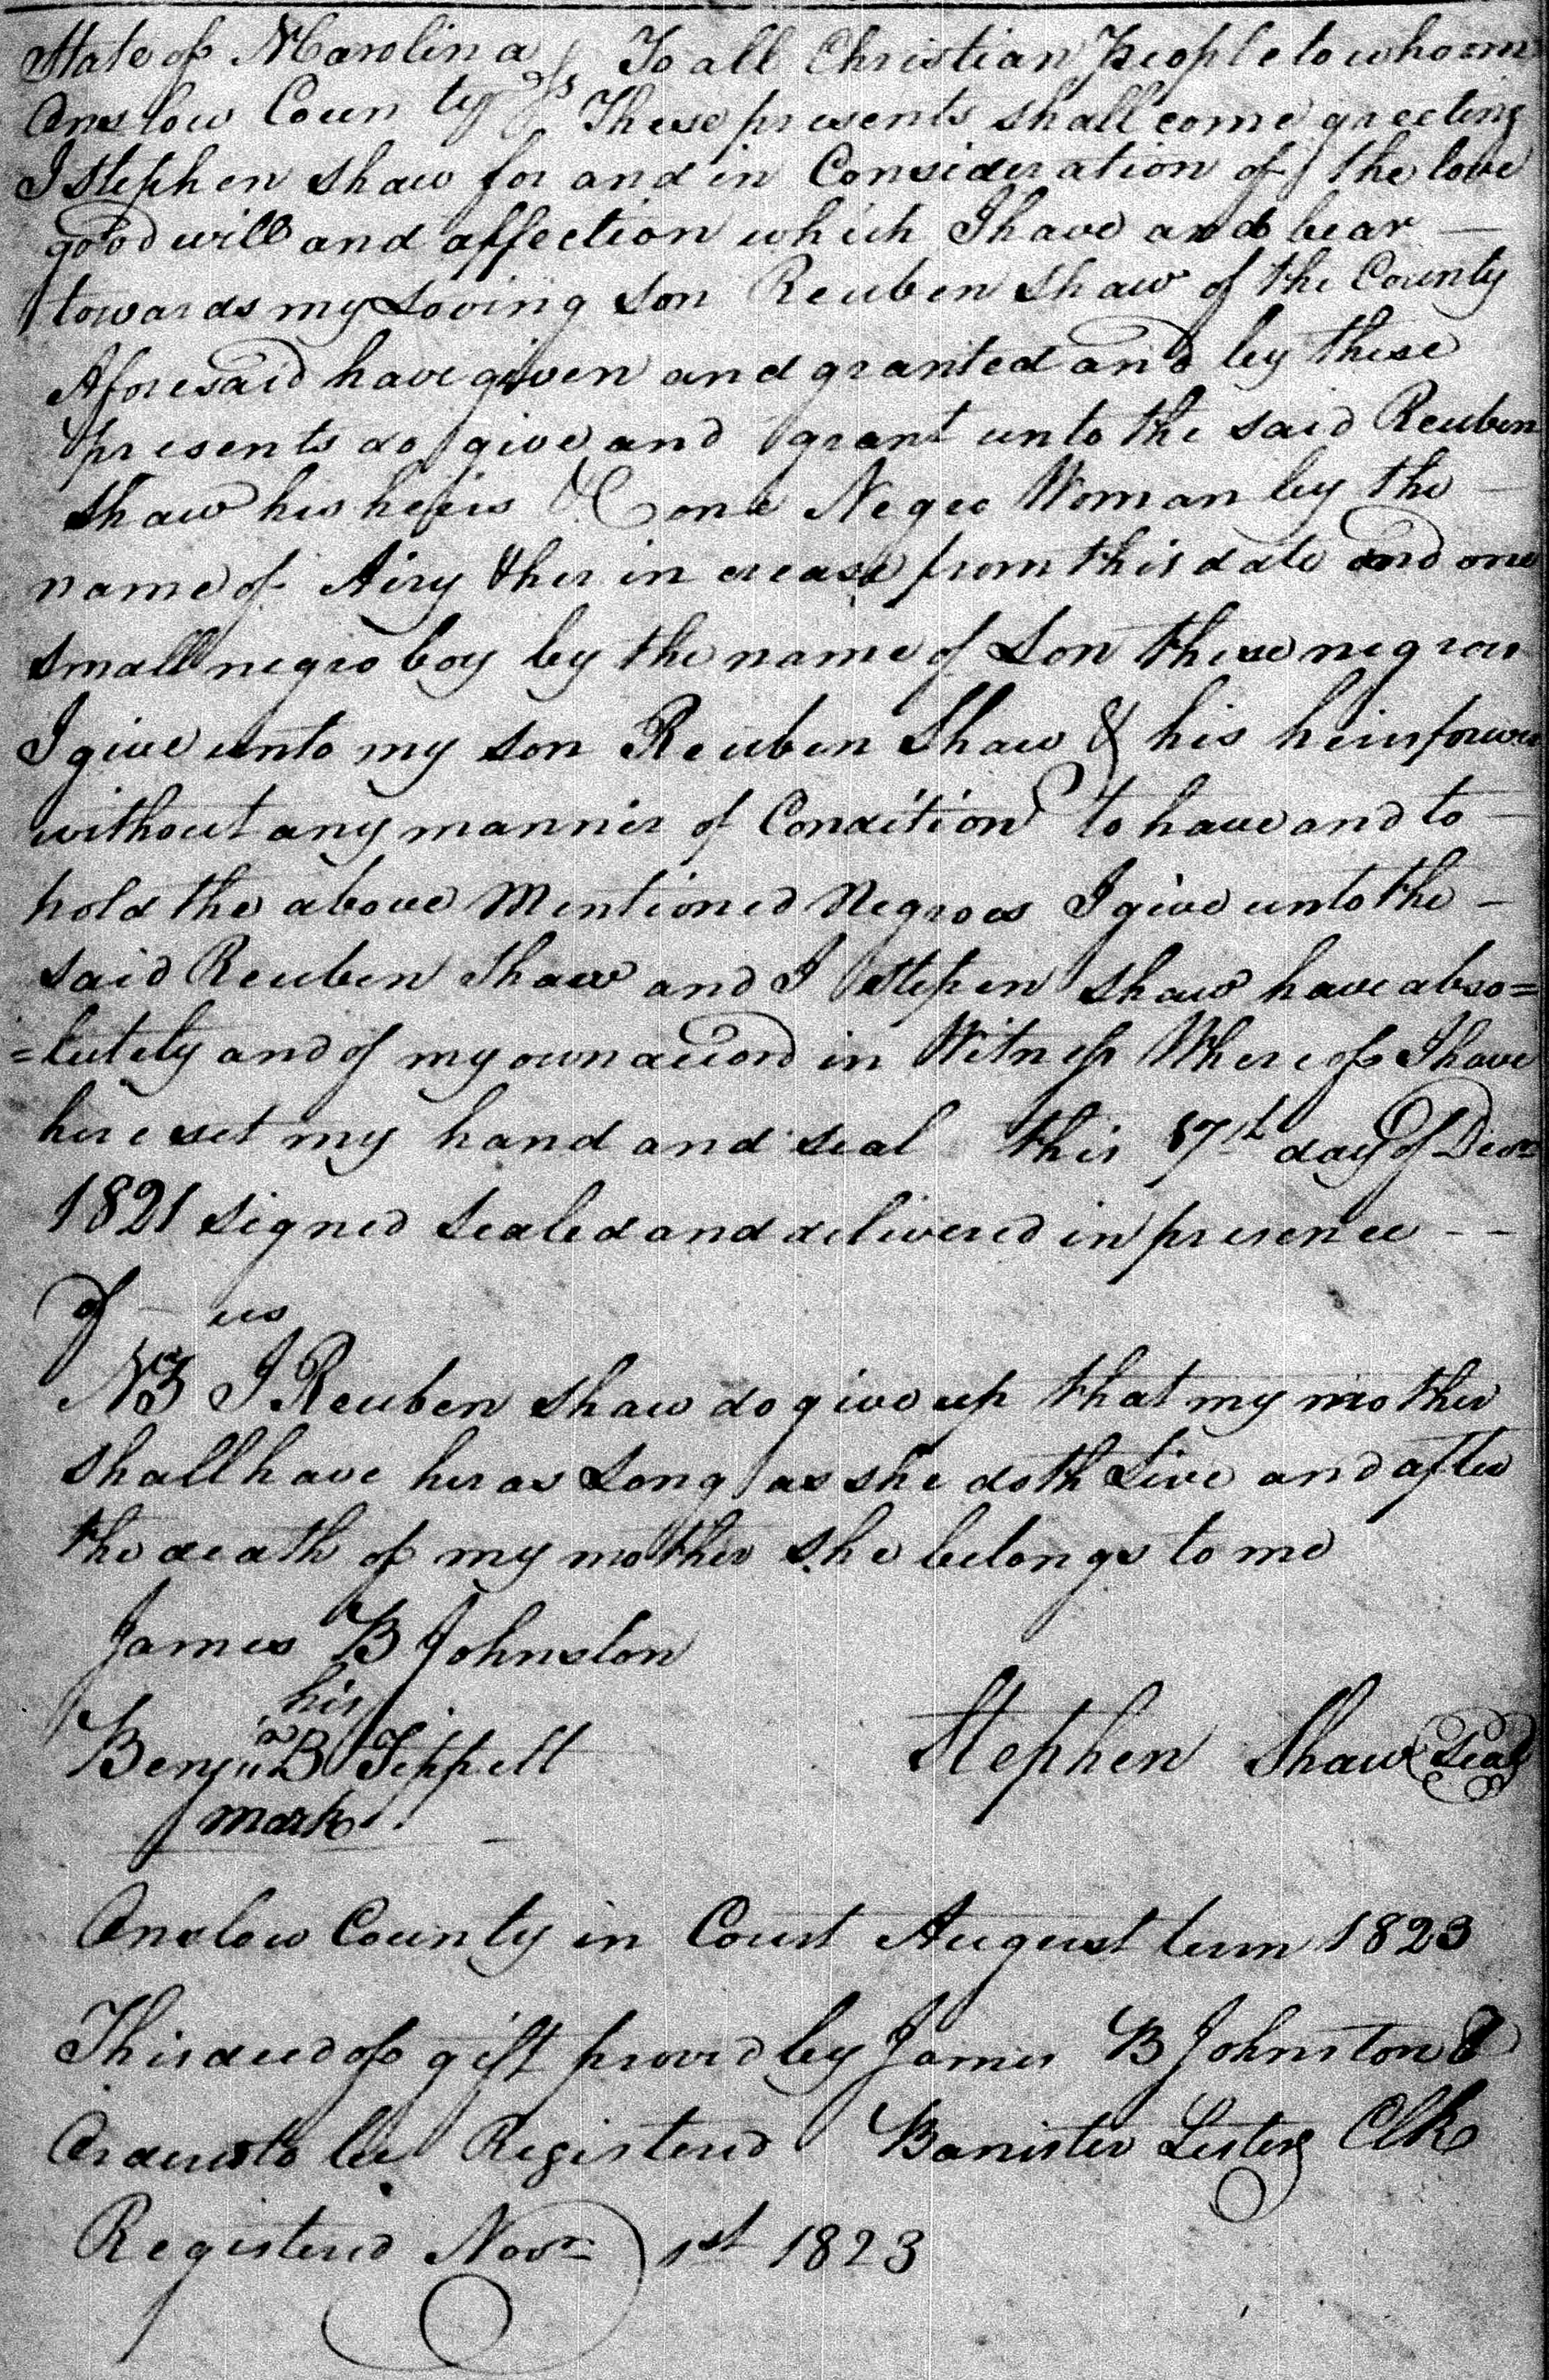 State of N Carolina } ss To all Christian People to whom
Onslow County } These presents shall come greeting
I Stephen Shaw for and in Consideration of the love
good will and affection which I have and bear —
towards my Loving Son Reuben Shaw of the County
Aforesaid have given and granted and by these
presents do give and grant unto the said Reuben
Shaw his heirs &C one Negro Woman by the —
name of Airy & her increase from this date and one
small negro boy by the name of Son these negroes
I give unto my son Reuben Shaw & his heirs forever
without any manner of Condition to have and to —
hold the above Mentioned Negroes I give unto the —
said Reuben Shaw and I Stepen Shaw have abso=
=lutely and of my own accord in Witness Whereof I have
here set my hand and seal this 17th day of Decr
1821 signed sealed and delivered in presence - -
of us
NB I Reuben Shaw do give up that my mother
shall have her as Long as she doth Live and after
the death of my mother she belongs to me
James B Johnston
his
Benja B Tippett Stephen Shaw (Seal)
mark
Onslow County in Court August term 1823
This deed of gift proved by James B Johnston &
Ordered to be Registered Banister Lester Clk
Registered Novr 1st 1823